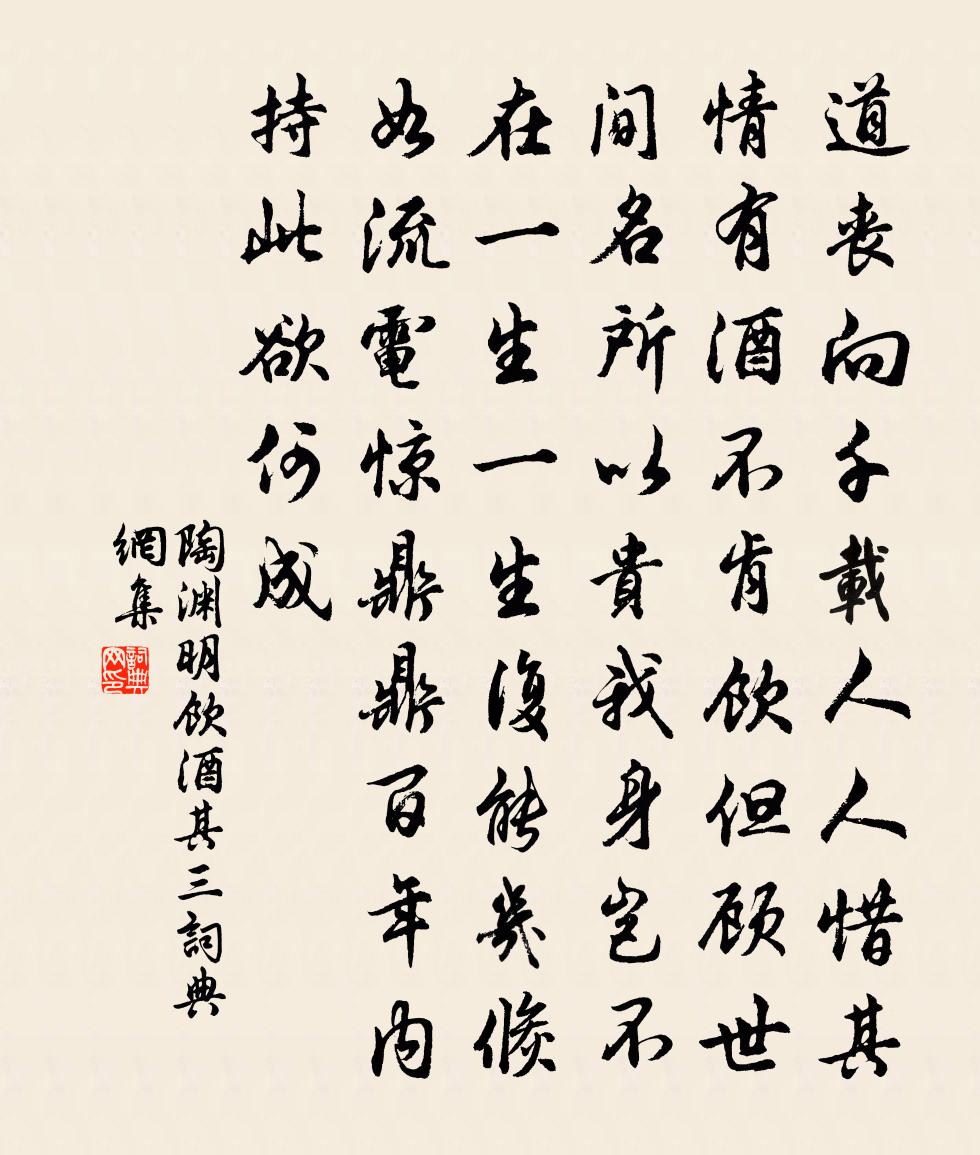 道丧向千載人人惜其
情有酒不肯飲但顾世
間名所以貴我身岂不
在一生一生復能幾倏
如流電惊鼎鼎百年内
持此欲何成
陶渊明飲酒其三詞典
網集
詞典
网印